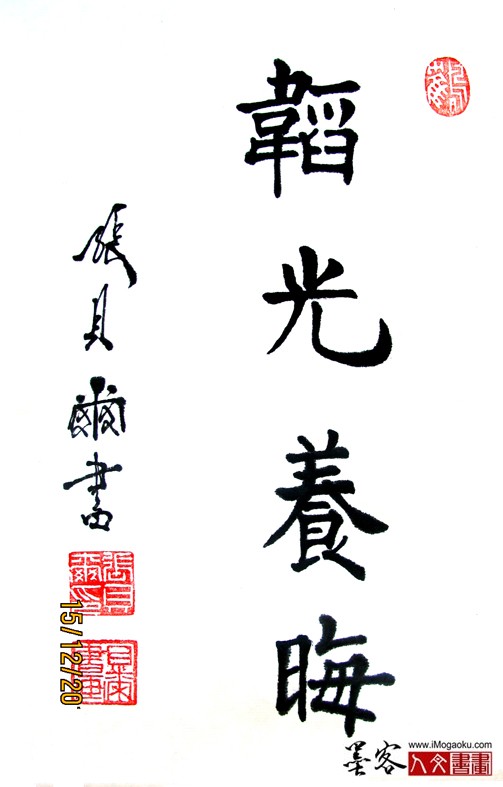 韜光養晦
張貝爾書
15/12/20
www.iMogaoku.com
墨客
人文書畫